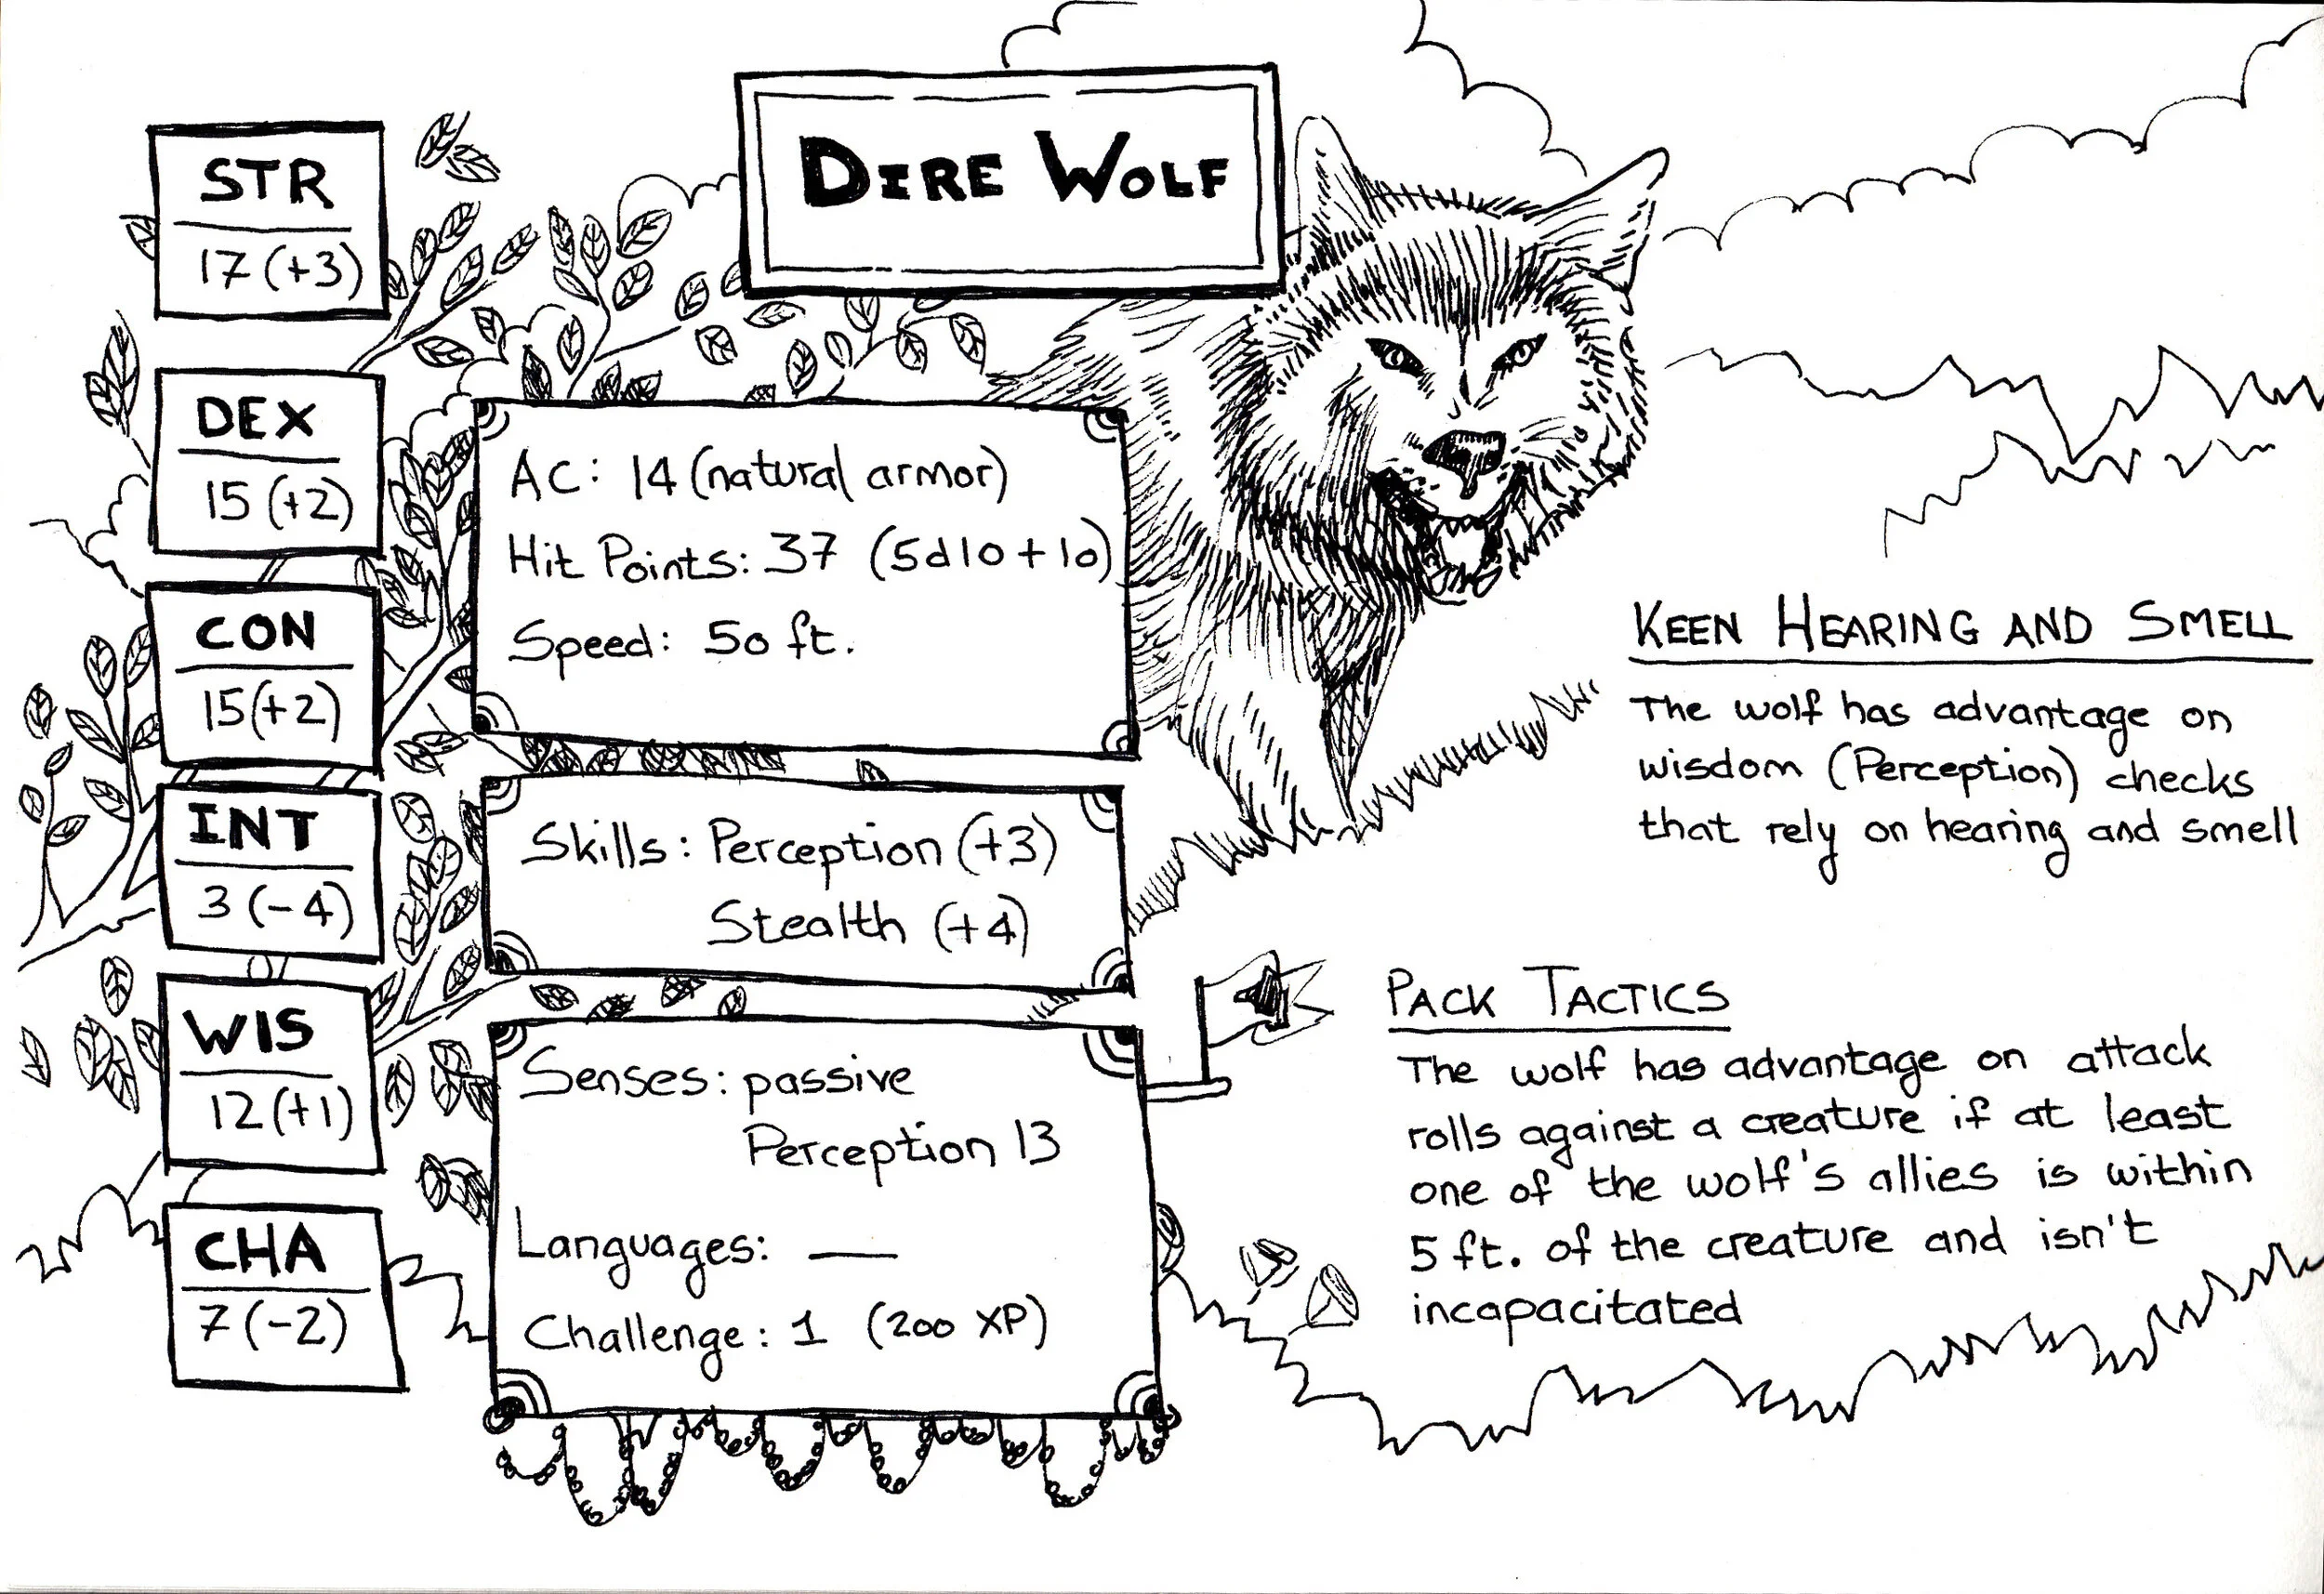 DIRE WOLF
STR
17 (+3)
DEX
15 (+2)
CON
15 (+2)
INT
3 (-4)
WIS
12 (+1)
CHA
7 (-2)
AC: 14 (natural armor)
Hit Points: 37 (5d10 + 10)
Speed: 50 ft.
Skills: Perception (+3)
Stealth (+4)
Senses: passive
Perception 13
Languages: —
Challenge: 1 (200 XP)
KEEN HEARING AND SMELL
The wolf has advantage on
wisdom (Perception) checks
that rely on hearing and smell
PACK TACTICS
The wolf has advantage on attack
rolls against a creature if at least
one of the wolf's allies is within
5 ft. of the creature and isn't
incapacitated